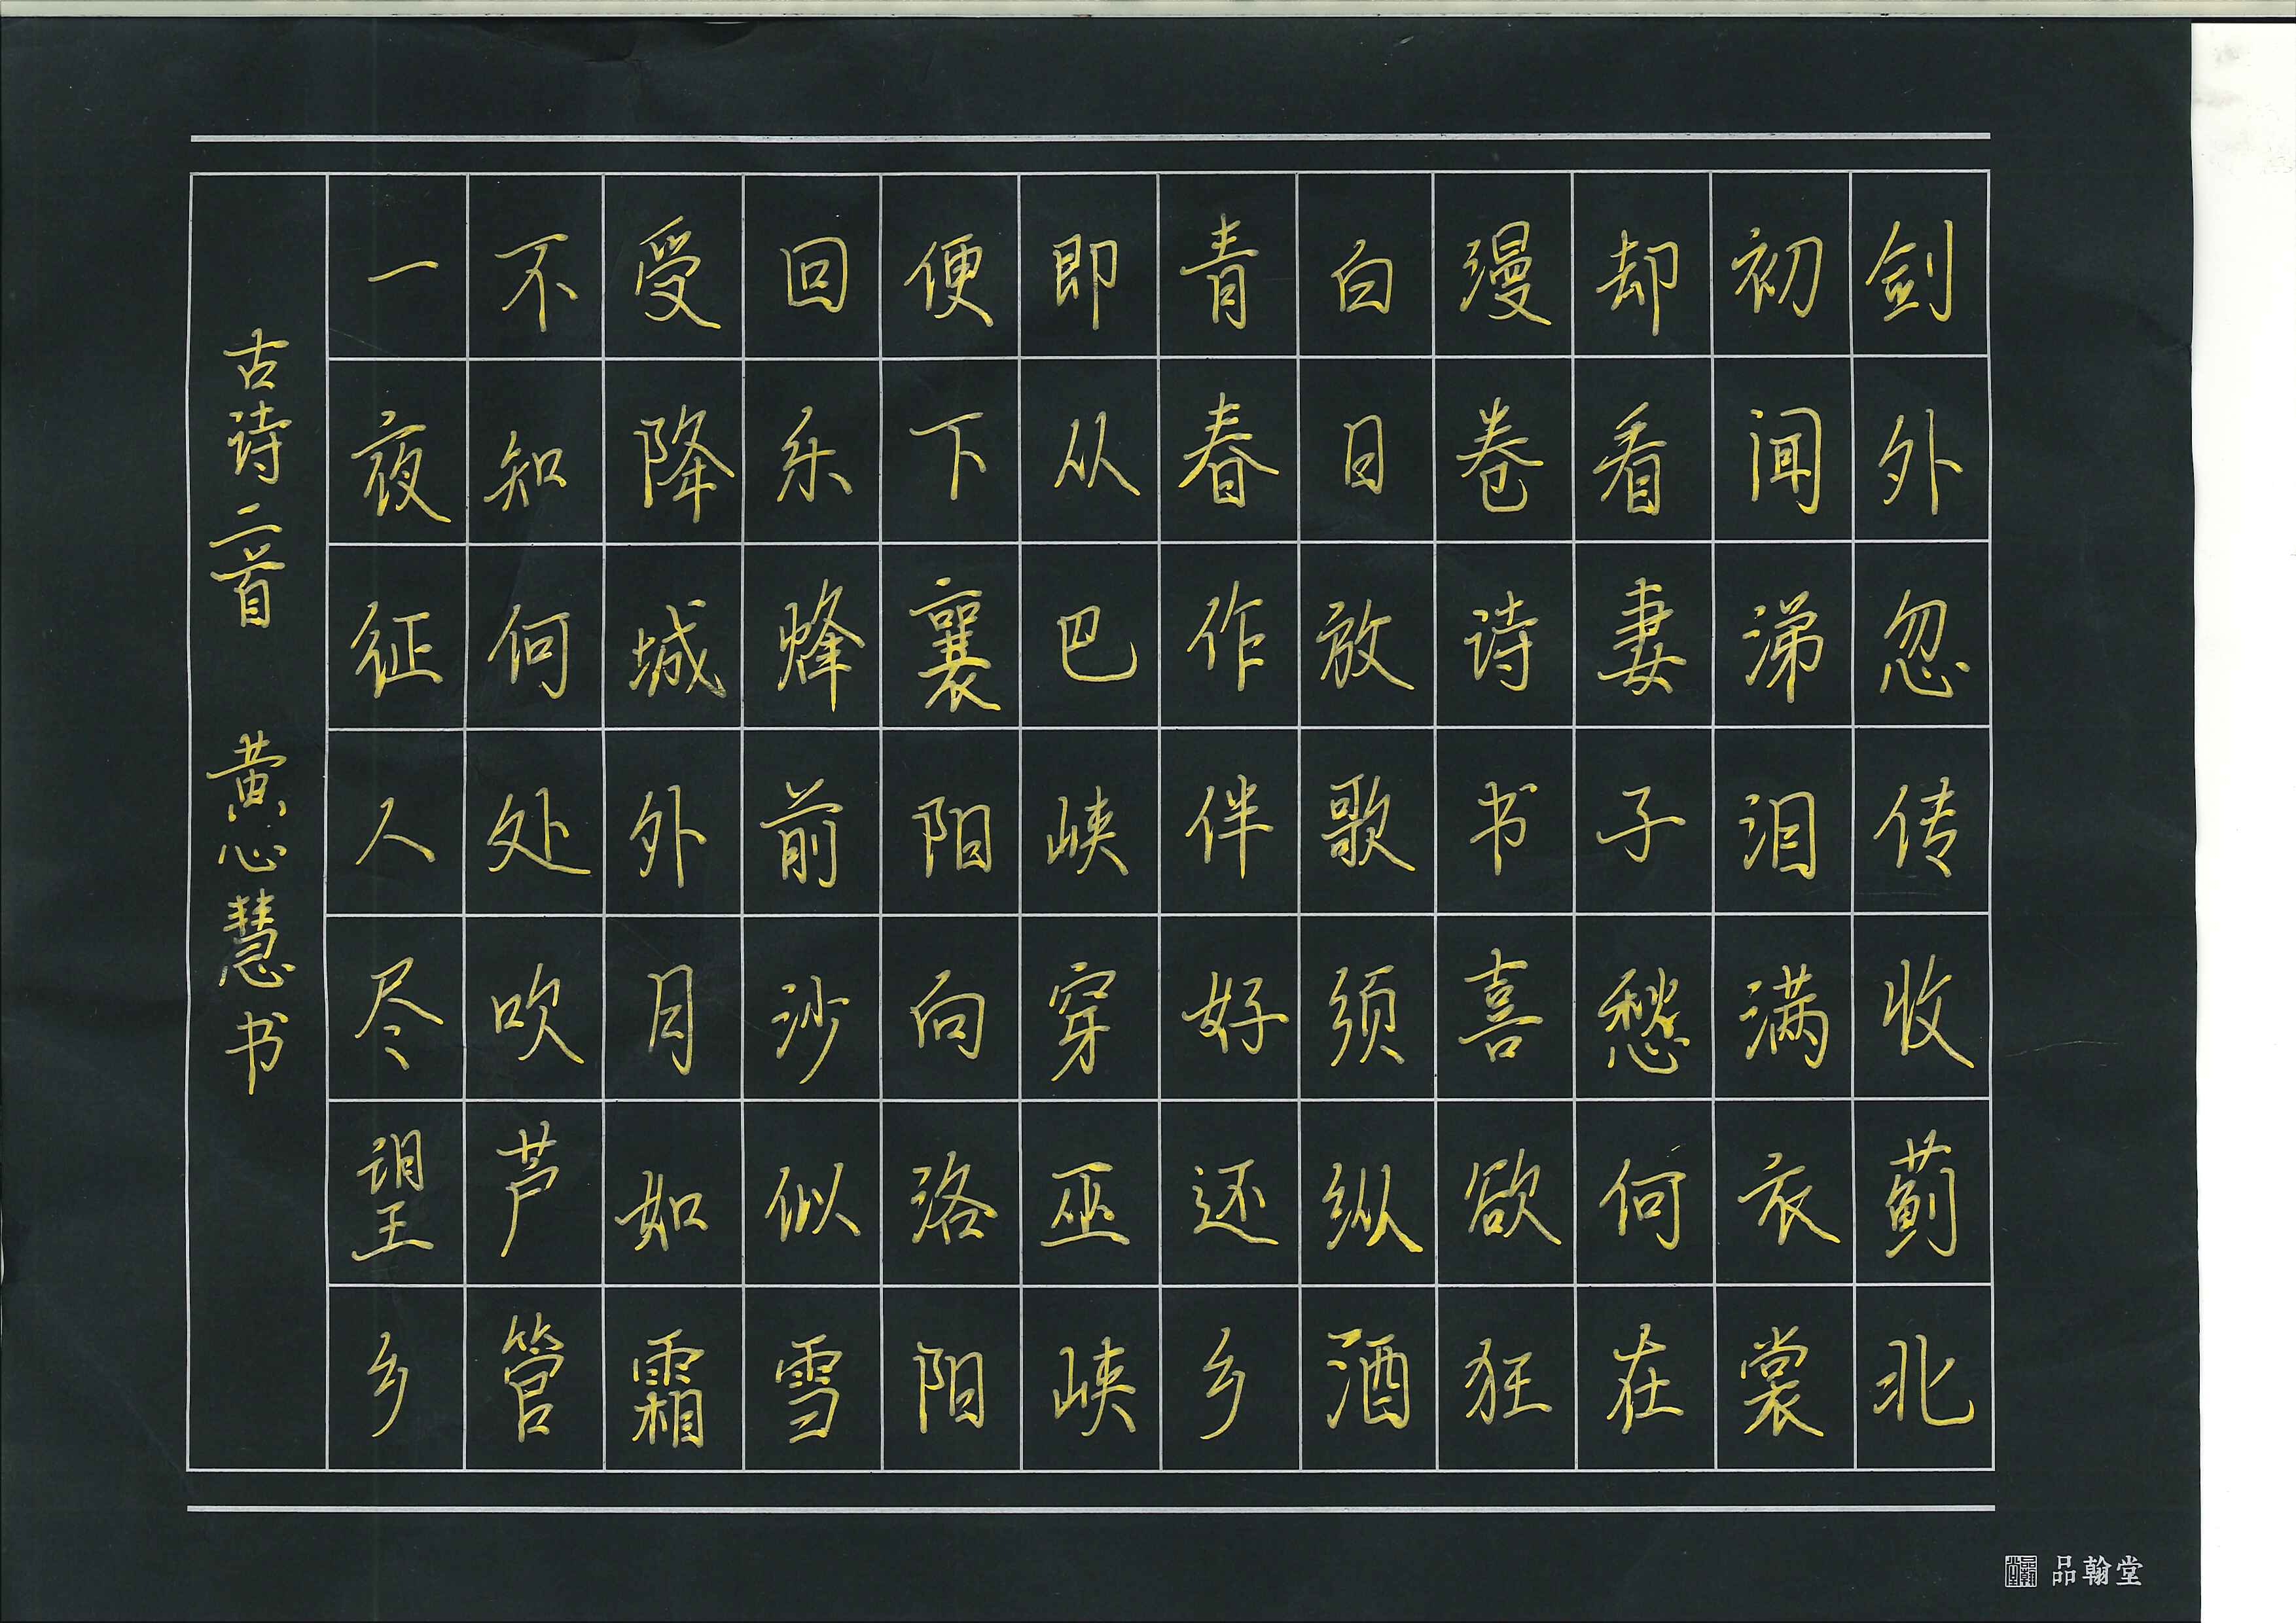 剑外忽传收蓟北
初闻涕泪满衣裳
却看妻子愁何在
漫卷诗书喜欲狂
白日放歌须纵酒
青春作伴好还乡
即从巴峡穿巫峡
便下襄阳向洛阳
回乐烽前沙似雪
受降城外月如霜
不知何处吹芦管
一夜征人尽望乡
古诗二首 黄心慧书
品翰堂